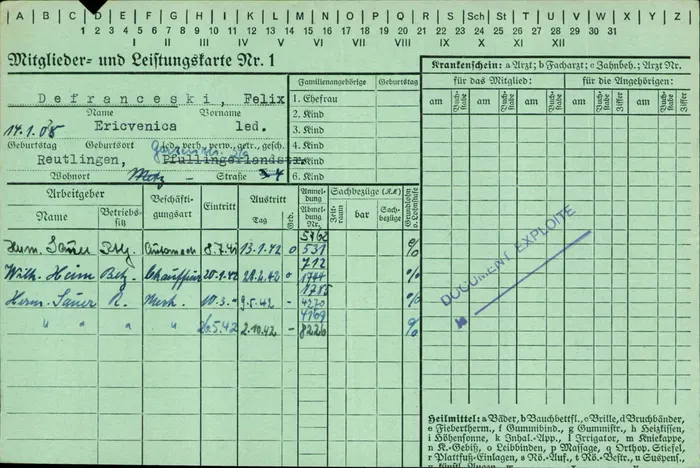 A B C D E F G H I K L M N O P Q R S Sch St T U V W X Y Z
1 2 3 4 5 6 7 8 9 10 11 12 13 14 15 16 17 18 19 20 21 22 23 24 25 26 27 28 29 30 31
I II III IV V VI VII VIII IX X XI XII
Mitglieder- und Leistungskarte Nr. 1
Defranceski, Felix
Name Vorname
14.1.08 Ericvenica led.
Geburtstag Geburtsort led. verh. verw., getr., gesch.
Reutlingen, Pfullingerlandstr.
Wohnort Metz – Straße
Familienangehörige Geburtstag
1. Ehefrau
2. Kind
3. Kind
4. Kind
5. Kind
6. Kind
Krankenschein: a Arzt; b Facharzt; c Zahnbeh.; Arzt Nr.
für das Mitglied: für die Angehörigen:
am Buchstabe am Buchstabe am Buchstabe Ziffer am Buchstabe Ziffer
Arbeitgeber Beschäftigungsart Eintritt Austritt Anmeldung Sachbezüge Grundlohn o. Lohnstufe
Name Betriebssitz Tag Abmeldung Nr. Zeitraum bar Sachbezüge
Herm. Sauer 13.1.42 0 531
712
Wilh. Heim Betz. Chauffeur 20.1.42 0 1744
1785
Herm. Sauer R. Mech. 10.3. 9.5.42 - 4270
4169
" " " " 26.5.42 2.10.42 - 8226
DOCUMENT EXPLOITE
Heilmittel: a Bäder, b Bauchbettfl., c Brille, d Bruchbänder,
e Fiebertherm., f Gummibind., g Gummistr., h Heizkissen,
i Höhensonne, k Inhal.-App., l Irrigator, m Kniekappe,
n K.-Gebiß, o Leibbinden, p Massage, q Orthop. Stiefel,
r Plattfuß-Einlagen, s Rö.-Auf., t Rö.-Bestr., u Suspens.,